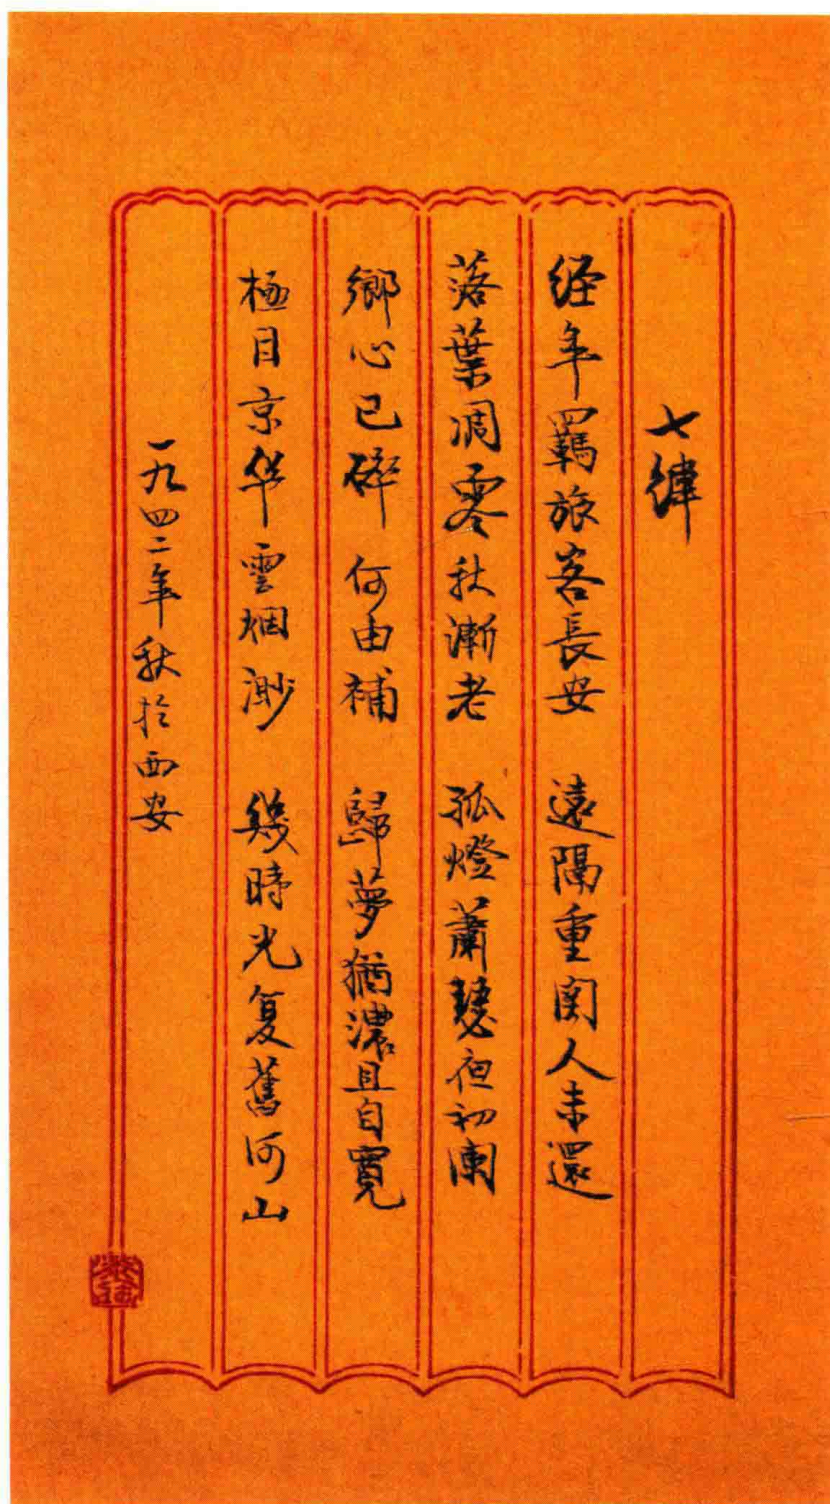 七律
经年羈旅客長安 遠隔重関人未還
落葉凋零秋漸老 孤燈蕭瑟夜初闌
鄉心已碎何由補 歸夢猶濃且自寬
極目京华雲烟渺 幾時光复舊河山
一九四二年秋於西安